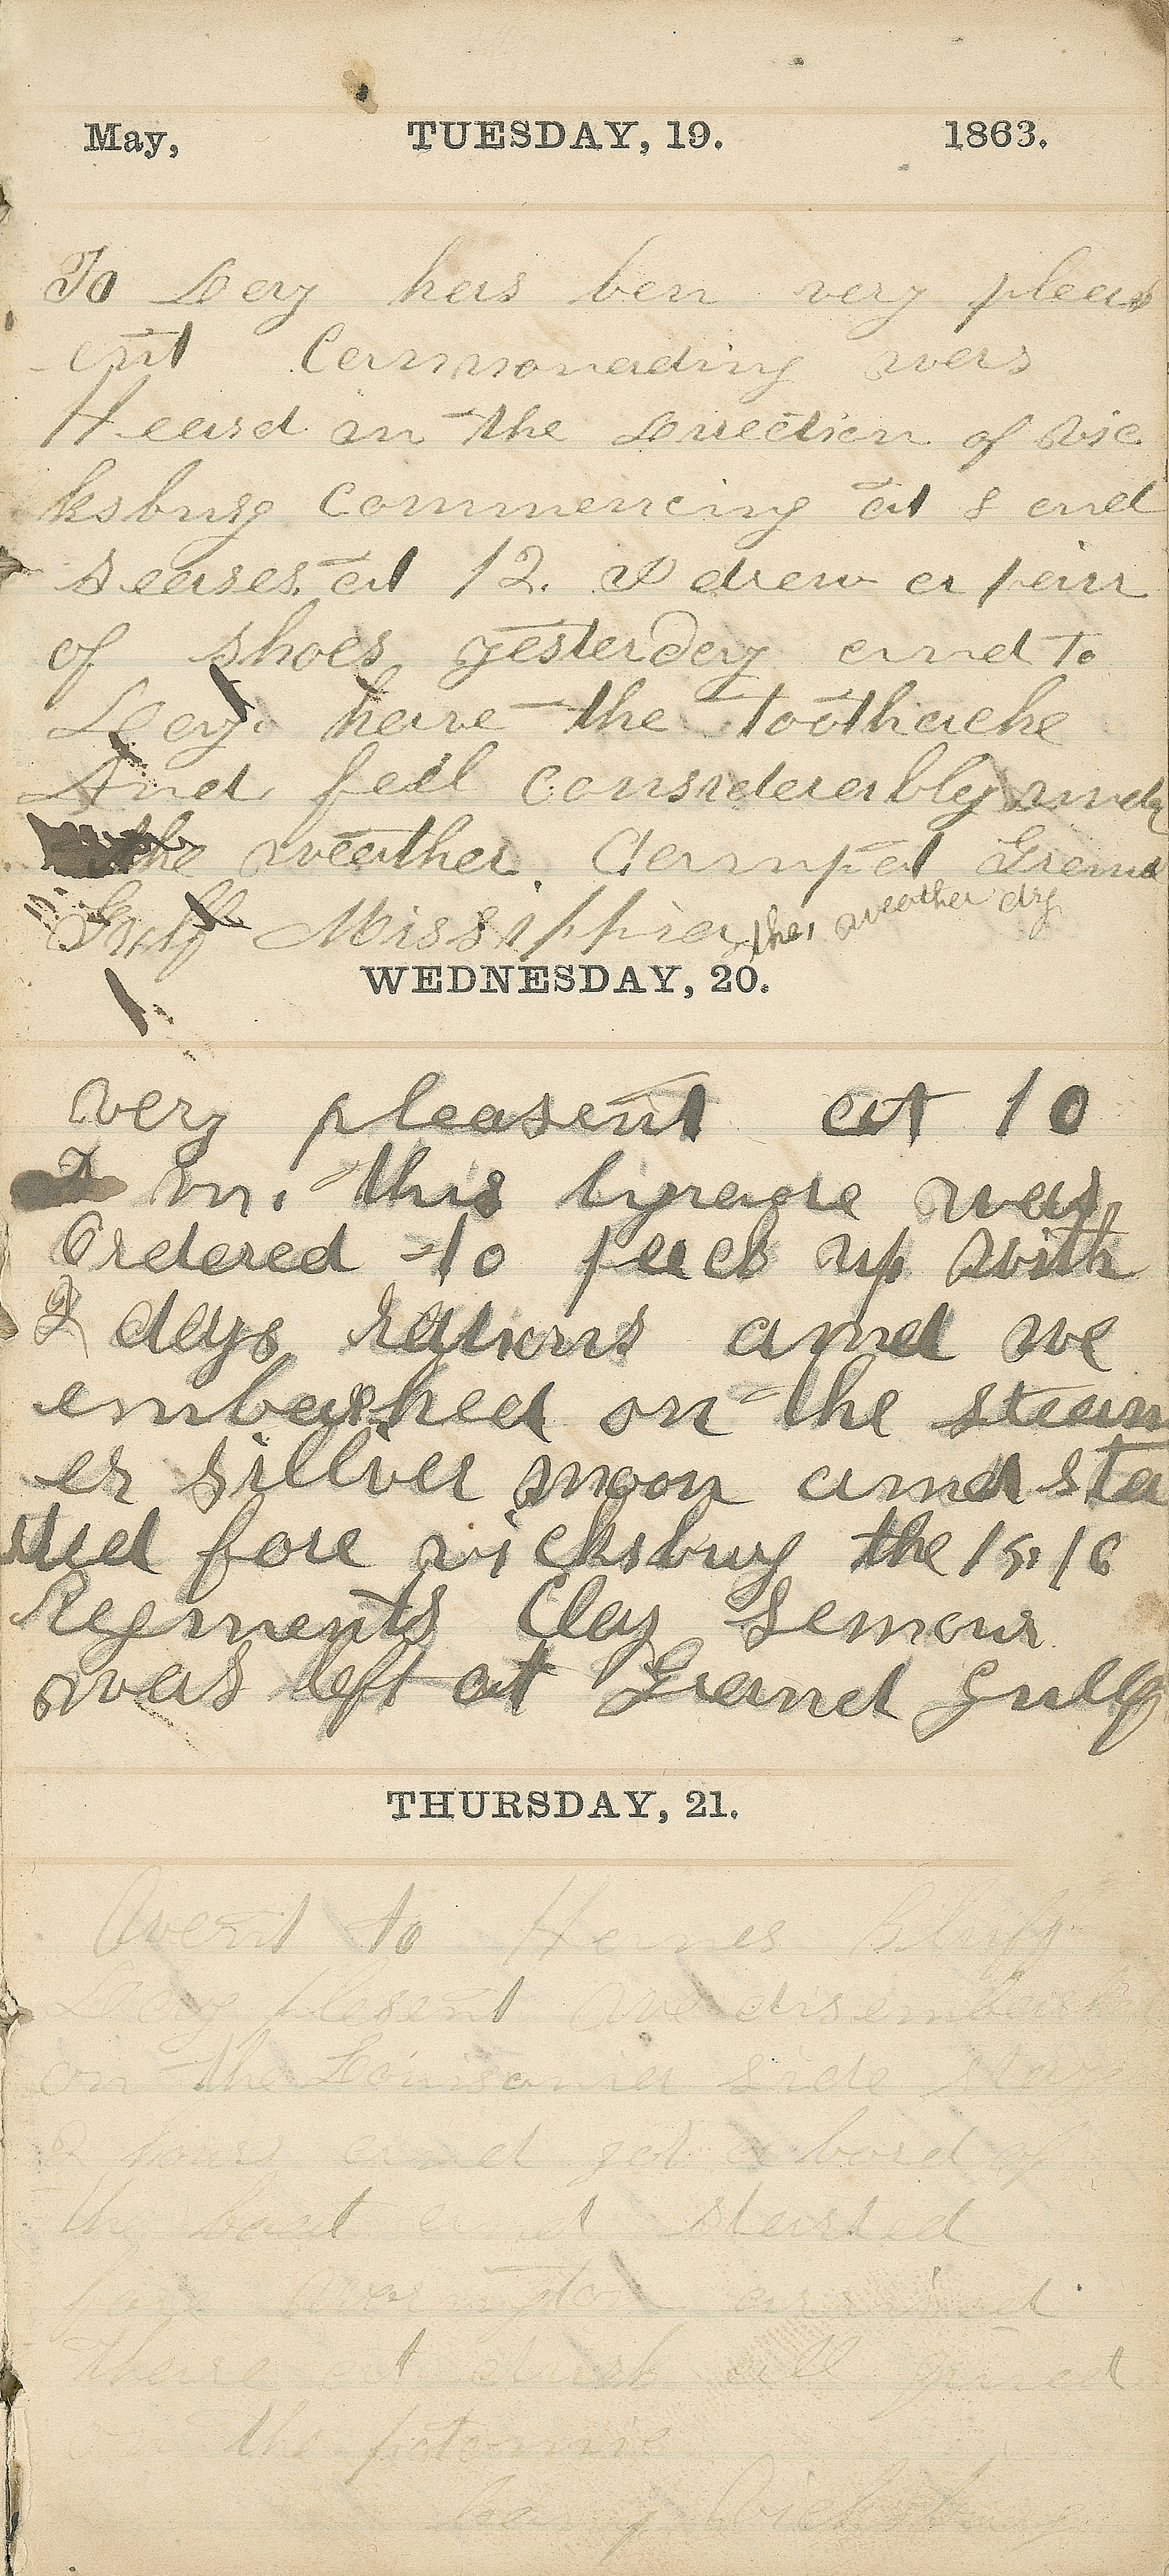 May, TUESDAY, 19. 1863.
To Day has ben very pleas
ent Cannonading was
Heard in the Direction of vic
ksburg commencing at 8 and
seases at 12. I drew a pair
of shoes yesterday and To
Day. have the toothache
And feel considerably unde
the weather. Camp at Grand
Gulf Missippia the weather dry
WEDNESDAY, 20.
very pleasent at 10
m. this bigade was
Ordered to pack up with
2 days rations and we
embarked on the steam
er sillver moon and sta
rted fore vicksburg the 15, 16
Regments Clay Semour
was left at Grand gullf
THURSDAY, 21.
Went to Hanes Bluff
Day plesent we disembark
on the Louisania side stay
2 hours and got a bord of
the boat and started
arrived
there at dusk all quiet
on the potomic
Vicksburg